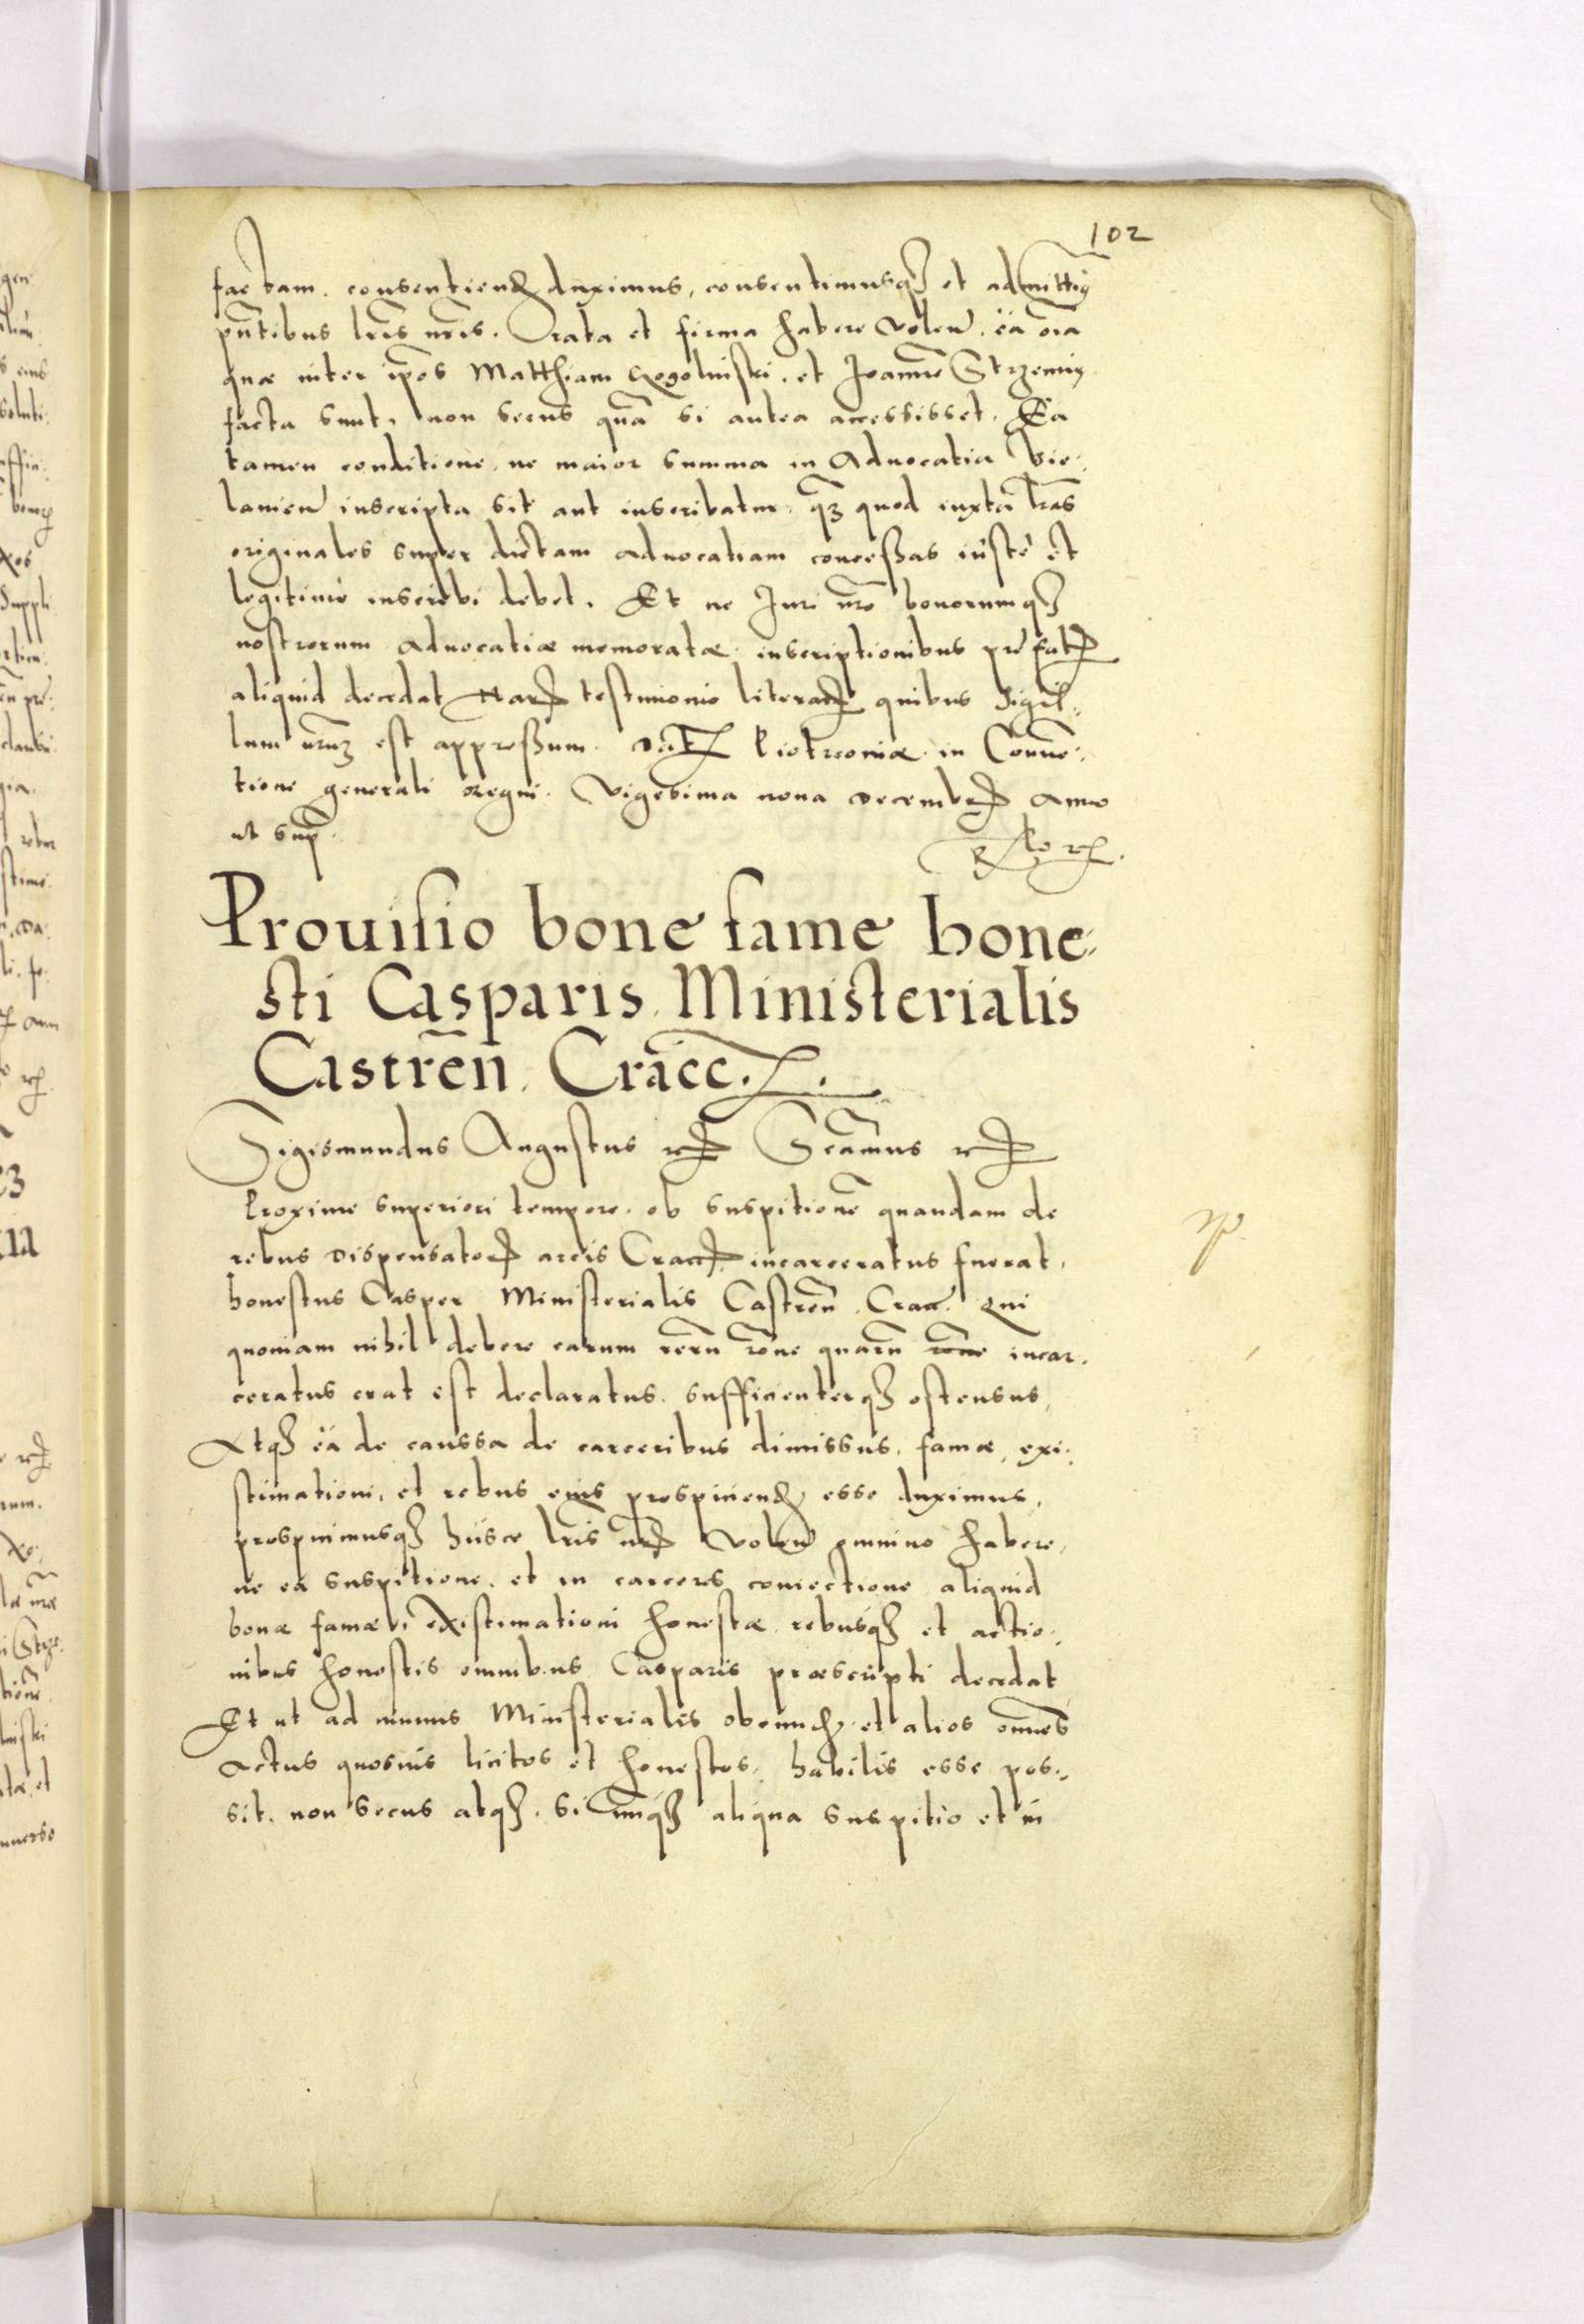 102
factam. consentiend duximus, consentimusq et admittim
pñtibus lris nris. Rata et firma habere volen. ea oia
quæ inter ipos Matthiam Rogolinski, et Joanne Strzemin
facta sunt, non secus qua si antea accessisset. Ea
tamen conditione, ne maior summa in Advocatia Vie:
lamien inscripta sit aut inscribatur, qz quod iuxta lras
originales super dictam advocatiam conceßas iuste et
legitime inscribi debet. Et ne Juri nro bonorumq
nostrorum Advocatiæ memoratæ inscriptionibus præfat
aliquid decedat Har testimonio literar quibus Sigil:
lum nrum est appreßum. Dat Piotrcoviæ in Conve:
tione generali Regni. Vigesima nona Decembr Anno
ut sup.
Prouisio bone fame hone:
sti Casparis Ministerialis
Castren. Cracc.
Sigismundus Augustus rc Seamus rc
Proxime superiori tempore ob suspitione quandam de
rebus Dispensator arcis Cracc incarceratus fuerat,
honestus Casper Ministerialis Castren. Cracc. Qui
quoniam nihil debere earum reru rone quaru rone incar:
ceratus erat est declaratus. sufficienterq ostensus,
Atq ea de caussa de carceribus dimissus, famæ, exi:
stimationi, et rebus eius prospiciend esse duximus,
prospicimusq hisce lris nr volen omnino habere,
ne ea suspitione. et in carceres coniectione aliquid
bonæ famæ, existimationi honestæ rebusq et actio:
nibus honestis omnibus Casparis præscripti decedat
Et ut ad munus Ministerialis obeund et alios omnes
Actus quosvis licitos et honestos, habilis esse pos:
sit. non secus atq. si unq aliqua suspitio et in